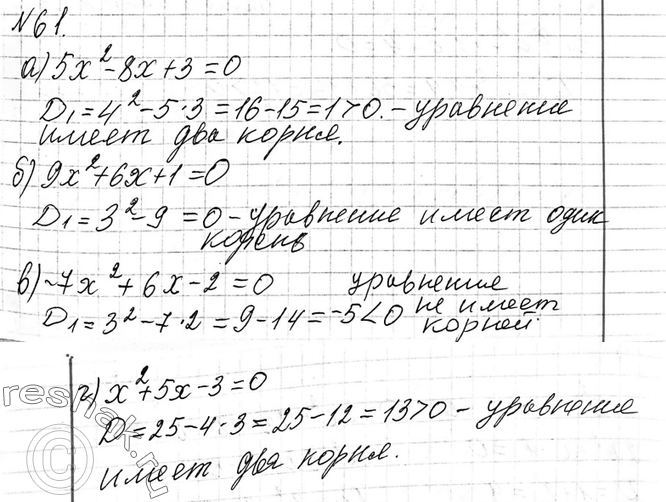 №61.
а) 5x² - 8x + 3 = 0
D₁ = 4² - 5·3 = 16 - 15 = 1 > 0. - уравнение
имеет два корня.
б) 9x² + 6x + 1 = 0
D₁ = 3² - 9 = 0 - уравнение имеет один
корень
в) -7x² + 6x - 2 = 0 уравнение
D₁ = 3² - 7·2 = 9 - 14 = -5 < 0 не имеет
корней.
г) x² + 5x - 3 = 0
D = 25 - 4·3 = 25 - 12 = 13 > 0 - уравнение
имеет два корня.
reshak.ru